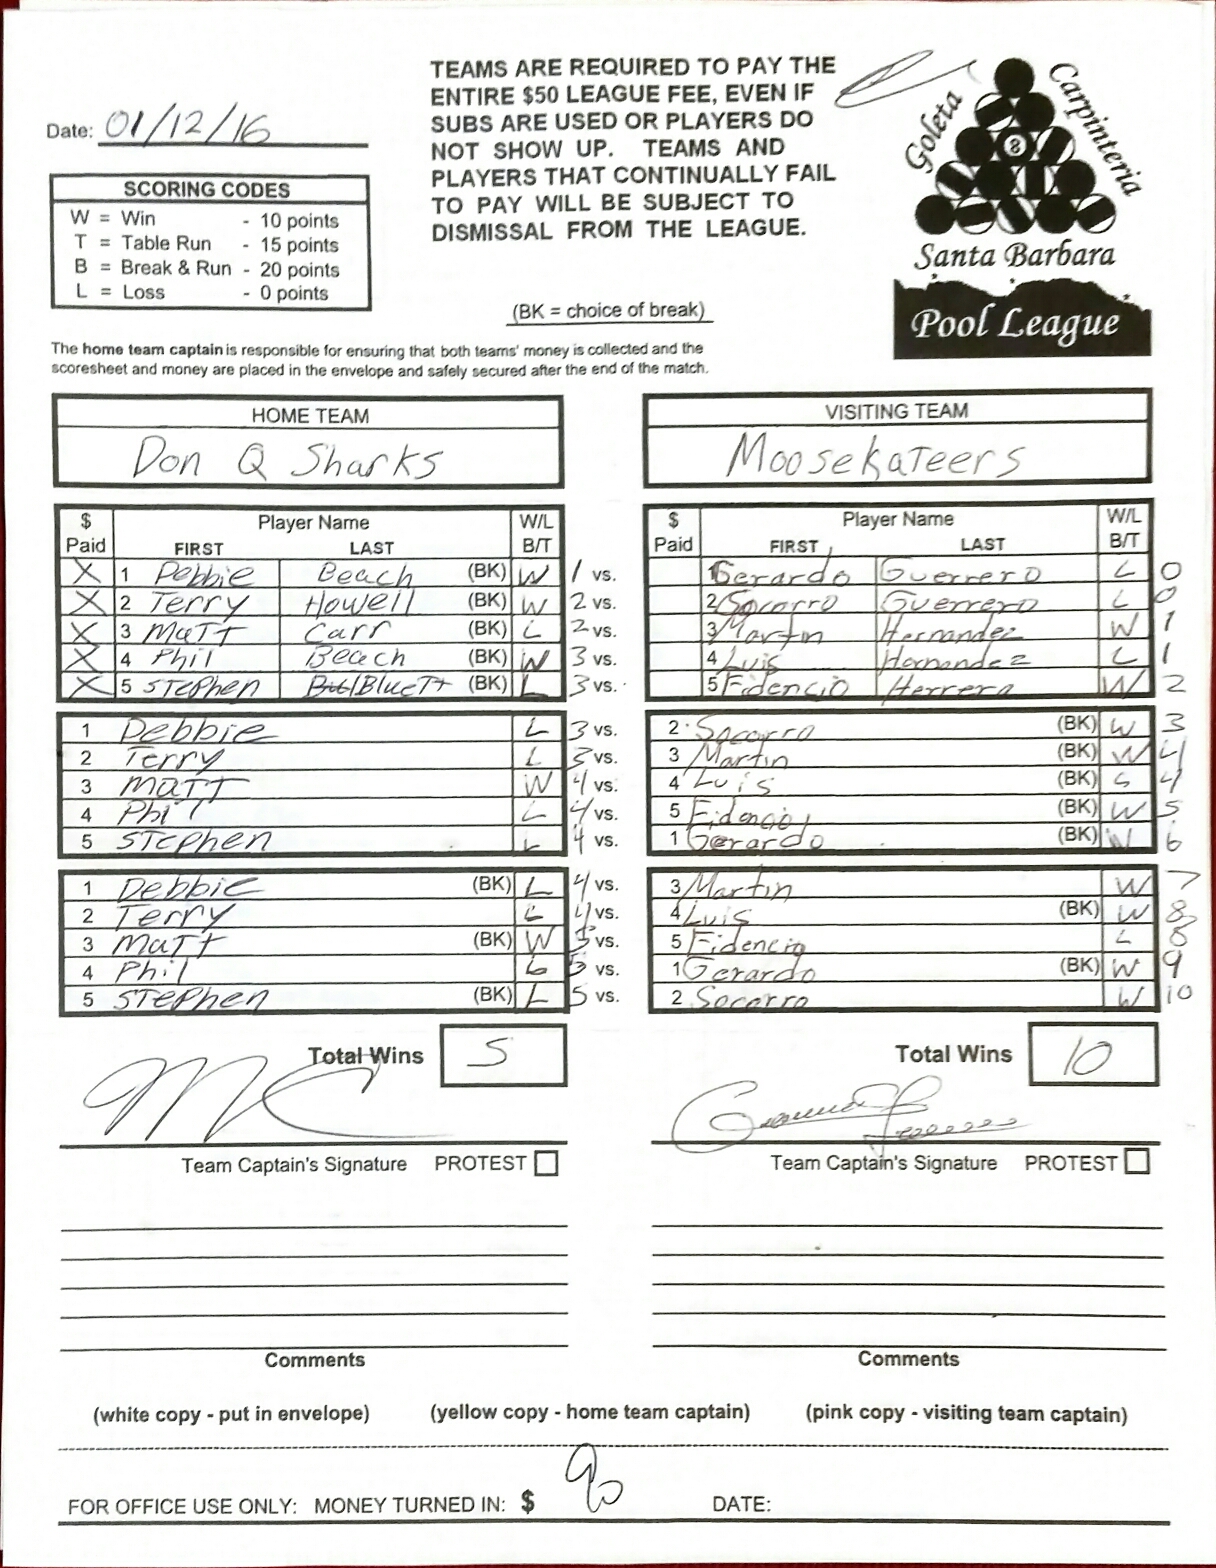 TEAMS ARE REQUIRED TO PAY THE
ENTIRE $50 LEAGUE FEE, EVEN IF
SUBS ARE USED OR PLAYERS DO
NOT SHOW UP. TEAMS AND
PLAYERS THAT CONTINUALLY FAIL
TO PAY WILL BE SUBJECT TO
DISMISSAL FROM THE LEAGUE.
Goleta
Carpinteria
8
Santa Barbara
Pool League
Date: 01/12/16
SCORING CODES
W = Win - 10 points
T = Table Run - 15 points
B = Break & Run - 20 points
L = Loss - 0 points
(BK = choice of break)
The home team captain is responsible for ensuring that both teams' money is collected and the
scoresheet and money are placed in the envelope and safely secured after the end of the match.
HOME TEAM VISITING TEAM
Don Q Sharks Moosekateers
$ Paid Player Name FIRST LAST W/L B/T $ Paid Player Name FIRST LAST W/L B/T
X 1 Debbie Beach (BK) W 1 vs. 1 Gerardo Guerrero L 0
X 2 Terry Howell (BK) W 2 vs. 2 Socorro Guerrero L 0
X 3 Matt Carr (BK) L 2 vs. 3 Martin Hernandez W 1
X 4 Phil Beach (BK) W 3 vs. 4 Luis Hernandez L 1
X 5 Stephen Bluett (BK) L 3 vs. 5 Fidencio Herrera W 2
1 Debbie L 3 vs. 2 Socorro (BK) W 3
2 Terry L 3 vs. 3 Martin (BK) W 4
3 Matt W 4 vs. 4 Luis (BK) 4
4 Phil L 4 vs. 5 Fidencio (BK) W 5
5 Stephen L 4 vs. 1 Gerardo (BK) W 6
1 Debbie (BK) L 4 vs. 3 Martin W 7
2 Terry L 4 vs. 4 Luis (BK) W 8
3 Matt (BK) W 5 vs. 5 Fidencio L 8
4 Phil L 5 vs. 1 Gerardo (BK) W 9
5 Stephen (BK) L 5 vs. 2 Socorro W 10
Total Wins 5 Total Wins 10
Team Captain's Signature PROTEST Team Captain's Signature PROTEST
Comments Comments
(white copy - put in envelope) (yellow copy - home team captain) (pink copy - visiting team captain)
FOR OFFICE USE ONLY: MONEY TURNED IN: $ 90 DATE: